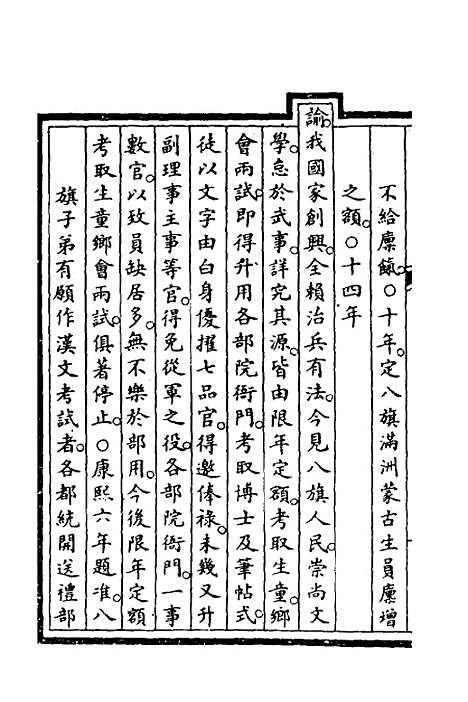 不給廩餼○十年定八旗滿洲蒙古生員廩增
之額○十四年
諭我國家創興全賴治兵有法今見八旗人民崇尚文
學怠於武事詳究其源皆由限年定額考取生童鄉
會兩試即得升用各部院衙門考取博士及筆帖式
徒以文字由白身優擢七品官得邀俸祿未幾又升
副理事主事等官得免從軍之役各部院衙門一事
數官以致員缺居多無不樂於部用今後限年定額
考取生童鄉會兩試俱著停止○康熙六年題准八
旗子弟有願作漢文考試者各都統開送禮部